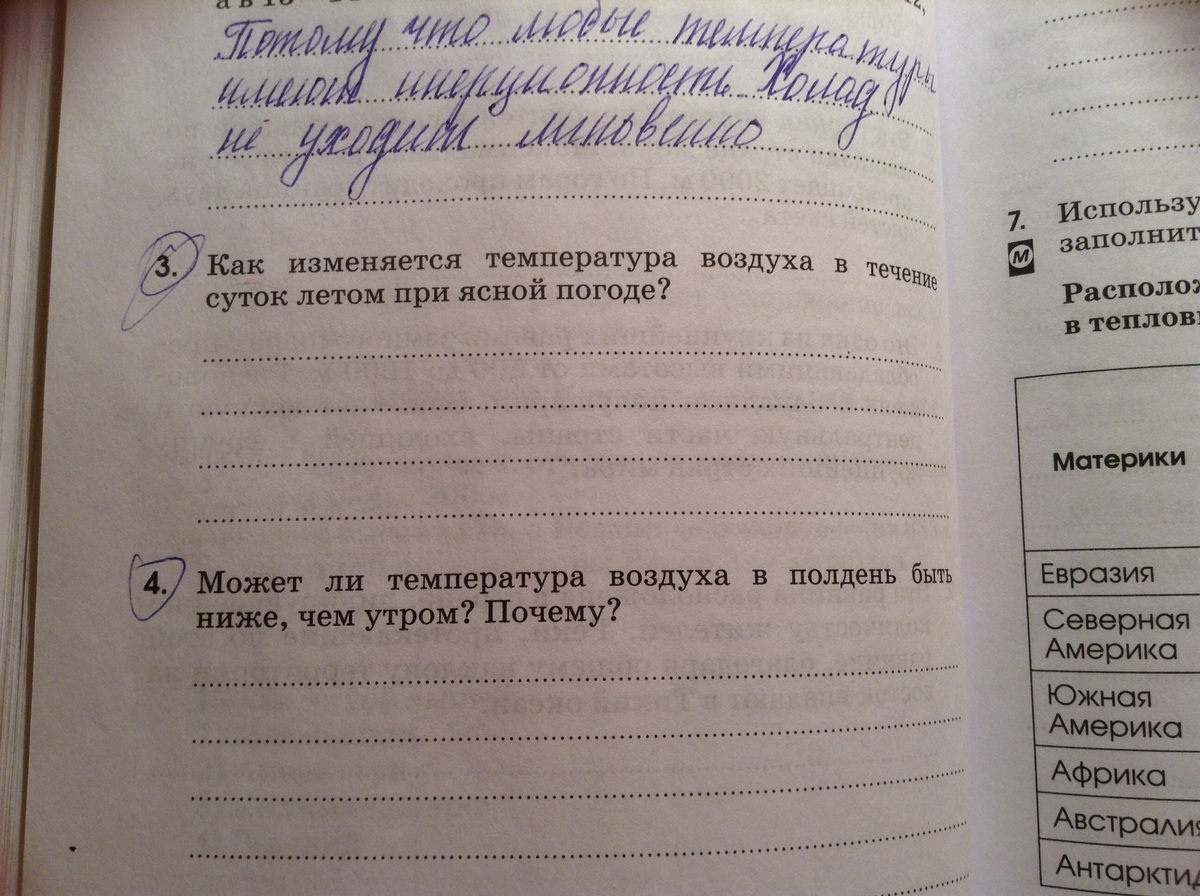 Потому что любые температуры
имеют инерционность. Холад
не уходит мгновенно
3. Как изменяется температура воздуха в течение
суток летом при ясной погоде?
4. Может ли температура воздуха в полдень быть
ниже, чем утром? Почему?
7. Использу
М заполнит
Располож
в теплов
Материки
Евразия
Северная
Америка
Южная
Америка
Африка
Австралия
Антарктид